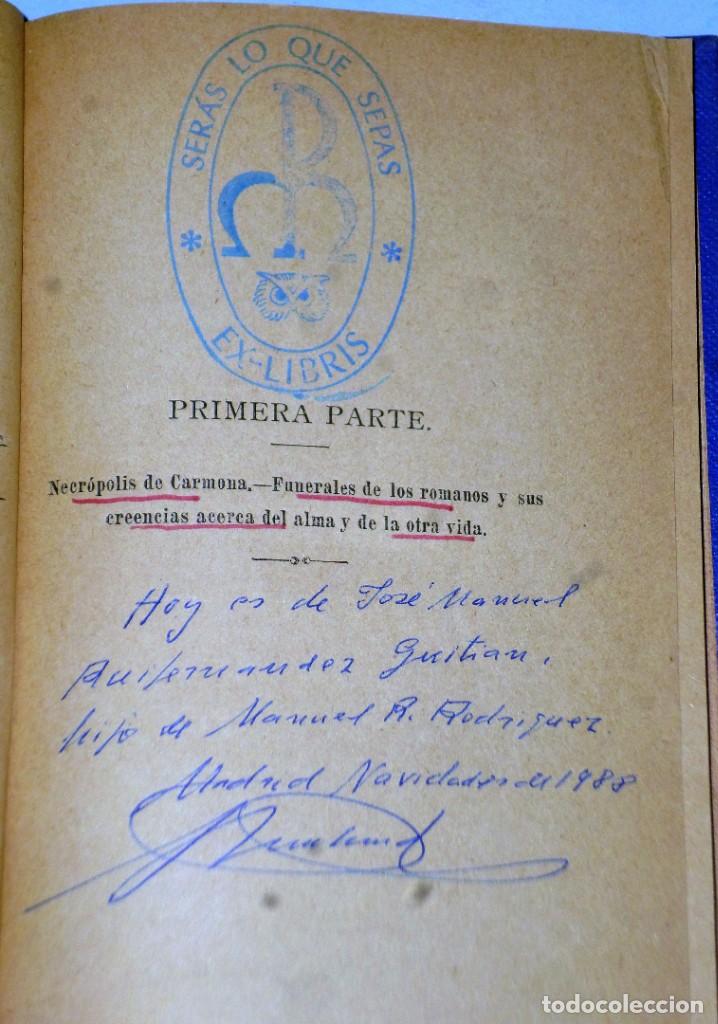 SERÁS LO QUE SEPAS
* *
EX-LIBRIS
PRIMERA PARTE.
Necrópolis de Carmona.—Funerales de los romanos y sus
creencias acerca del alma y de la otra vida.
Hoy es de José Manuel
Ruifernandez Guitian,
hijo de Manuel R. Rodriguez.
Madrid Navidades de 1988
todocoleccion